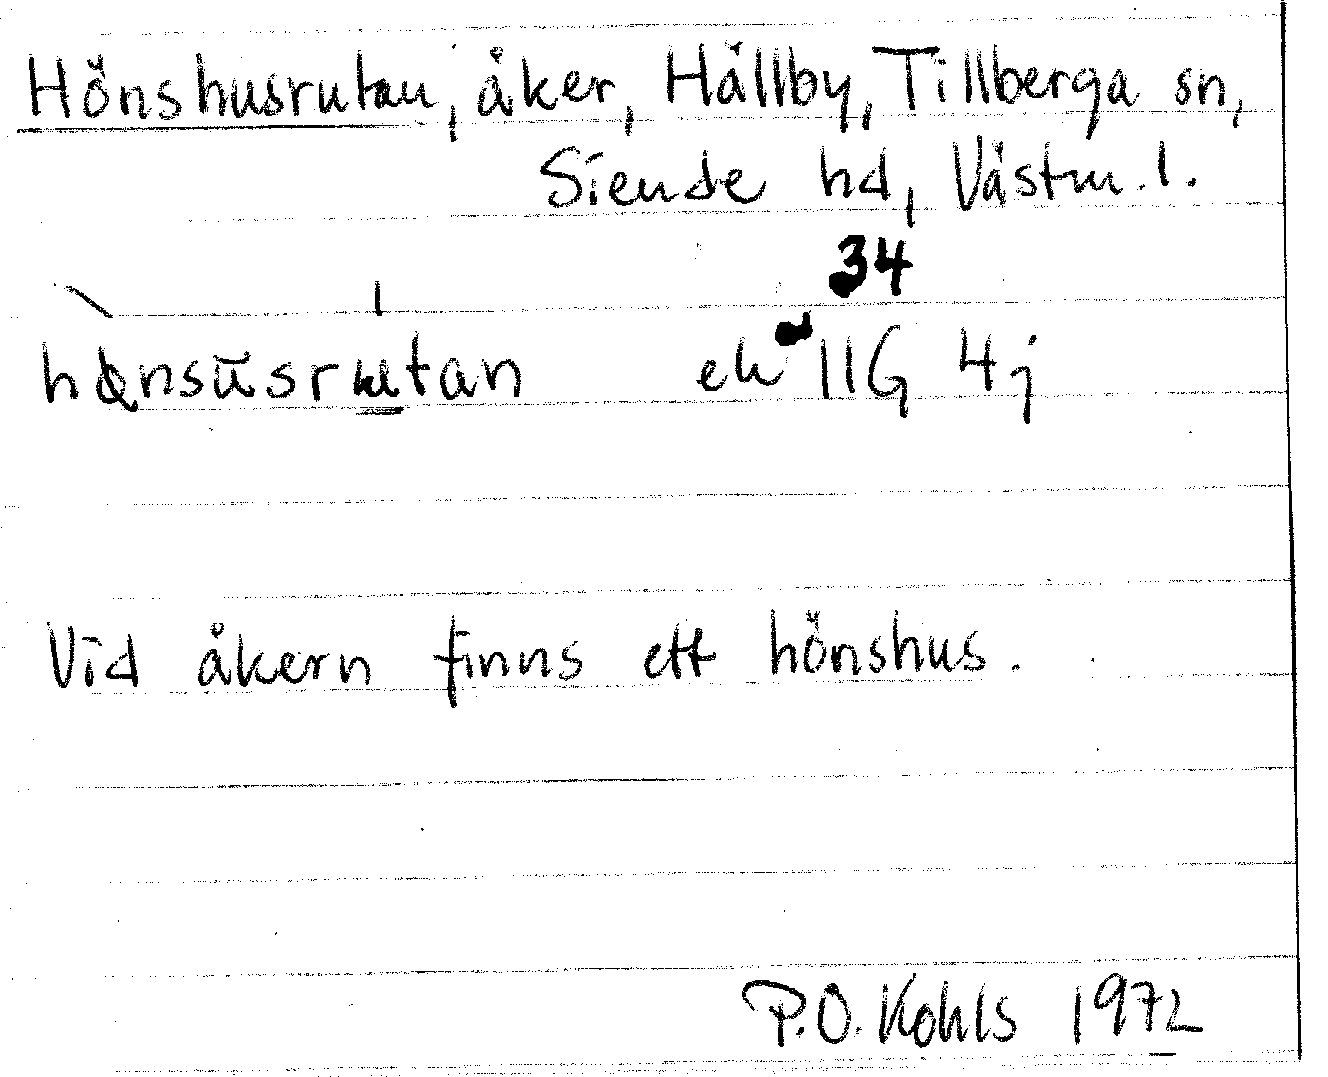 Hönshusrutan, åker, Hällby, Tillberga sn,
Siende hd, Västm. l.
34
ek 11G 4j
Vid åkern finns ett hönshus.
P.O. Kohls 1972